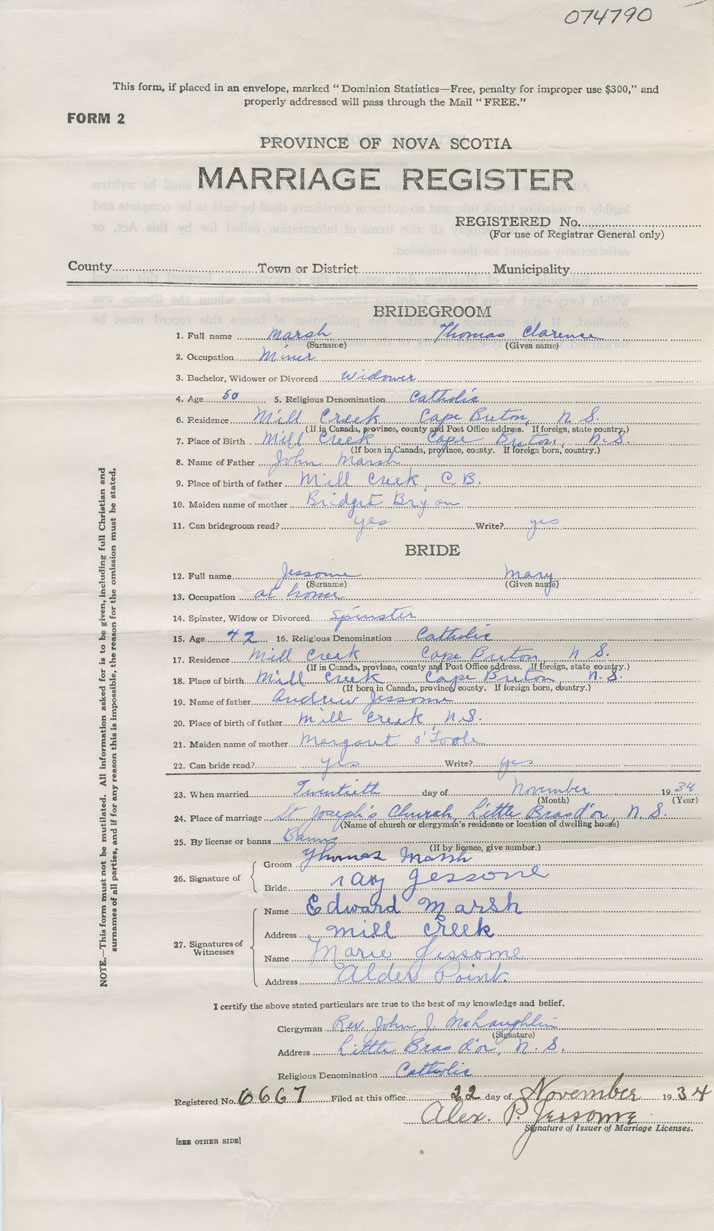 074790
This form, if placed in an envelope, marked "Dominion Statistics—Free, penalty for improper use $300," and
properly addressed will pass through the Mail "FREE."
FORM 2
PROVINCE OF NOVA SCOTIA
MARRIAGE REGISTER
REGISTERED No.
(For use of Registrar General only)
County Town or District Municipality
BRIDEGROOM
1. Full name Marsh Thomas Clarence
(Surname) (Given name)
2. Occupation Miner
3. Bachelor, Widower or Divorced Widower
4. Age 50 5. Religious Denomination Catholic
6. Residence Mill Creek Cape Breton, N.S.
(If in Canada, province, county and Post Office address. If foreign, state country.)
7. Place of Birth Mill Creek Cape Breton, N.S.
(If born in Canada, province, county. If foreign born, country.)
8. Name of Father John Marsh
9. Place of birth of father Mill Creek, C.B.
10. Maiden name of mother Bridget Bryan
11. Can bridegroom read? yes Write? yes
BRIDE
12. Full name Jessome Mary
(Surname) (Given name)
13. Occupation at home
14. Spinster, Widow or Divorced Spinster
15. Age 42 16. Religious Denomination Catholic
17. Residence Mill Creek Cape Breton N.S.
(If in Canada, province, county and Post Office address. If foreign, state country.)
18. Place of birth Mill Creek Cape Breton, N.S.
(If born in Canada, province, county. If foreign born, country.)
19. Name of father Andrew Jessome
20. Place of birth of father Mill Creek, N.S.
21. Maiden name of mother Margaret O'Toole
22. Can bride read? yes Write? yes
23. When married Twentieth day of November 1934
(Month) (Year)
24. Place of marriage St Joseph's Church, Little Bras d'or, N.S.
(Name of church or clergyman's residence or location of dwelling house)
25. By license or banns Banns
(If by licence, give number.)
26. Signature of
Groom Thomas Marsh
Bride Mary Jessome
27. Signatures of Witnesses
Name Edward Marsh
Address Mill Creek
Name Marie Jessome
Address Alder Point.
I certify the above stated particulars are true to the best of my knowledge and belief.
Clergyman Rev. John J. McLaughlin
(Signature)
Address Little Bras d'or, N.S.
Religious Denomination Catholic
Registered No. 6667 Filed at this office 22 day of November 1934
Alex. P. Jessome
Signature of Issuer of Marriage Licenses.
[SEE OTHER SIDE]
NOTE.—This form must not be mutilated. All information asked for is to be given, including full Christian and
surnames of all parties, and if for any reason this is impossible, the reason for the omission must be stated.